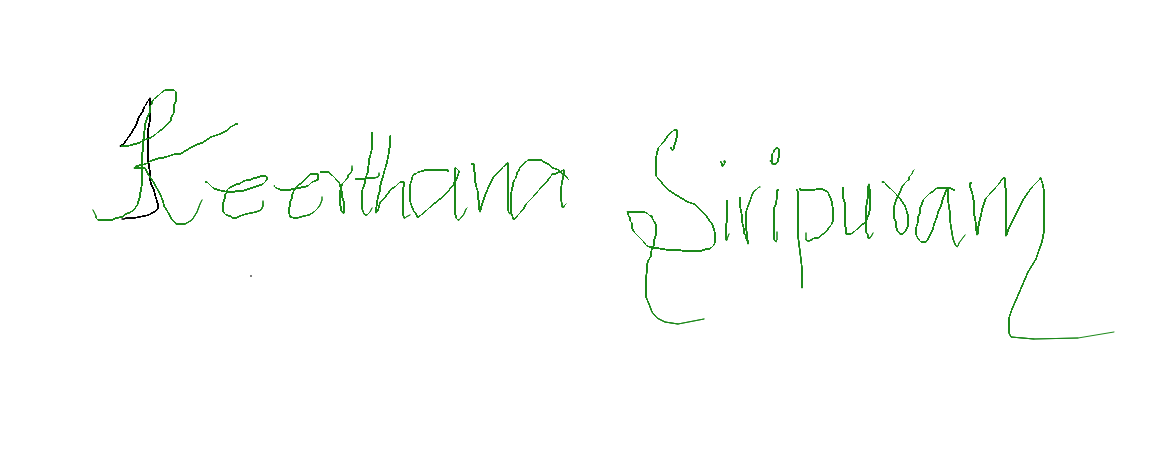 Keerthana Siripuram